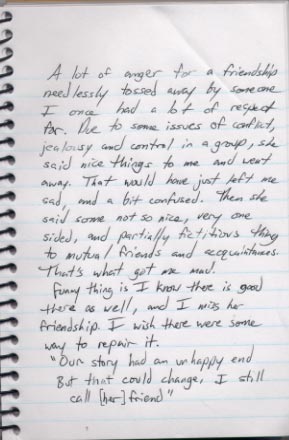 A lot of anger for a friendship
needlessly tossed away by someone
I once had a lot of respect
for. Due to some issues of conflict,
jealousy and control in a group, she
said nice things to me and went
away. That would have just left me
sad, and a bit confused. Then she
said some not so nice, very one
sided, and partially fictitious thing
to mutual friends and acquaintances.
That's what got me mad.
Funny thing is I know there is good
there as well, and I miss her
friendship. I wish there were some
way to repair it.
"Our story had an unhappy end
But that could change, I still
call [her] friend"